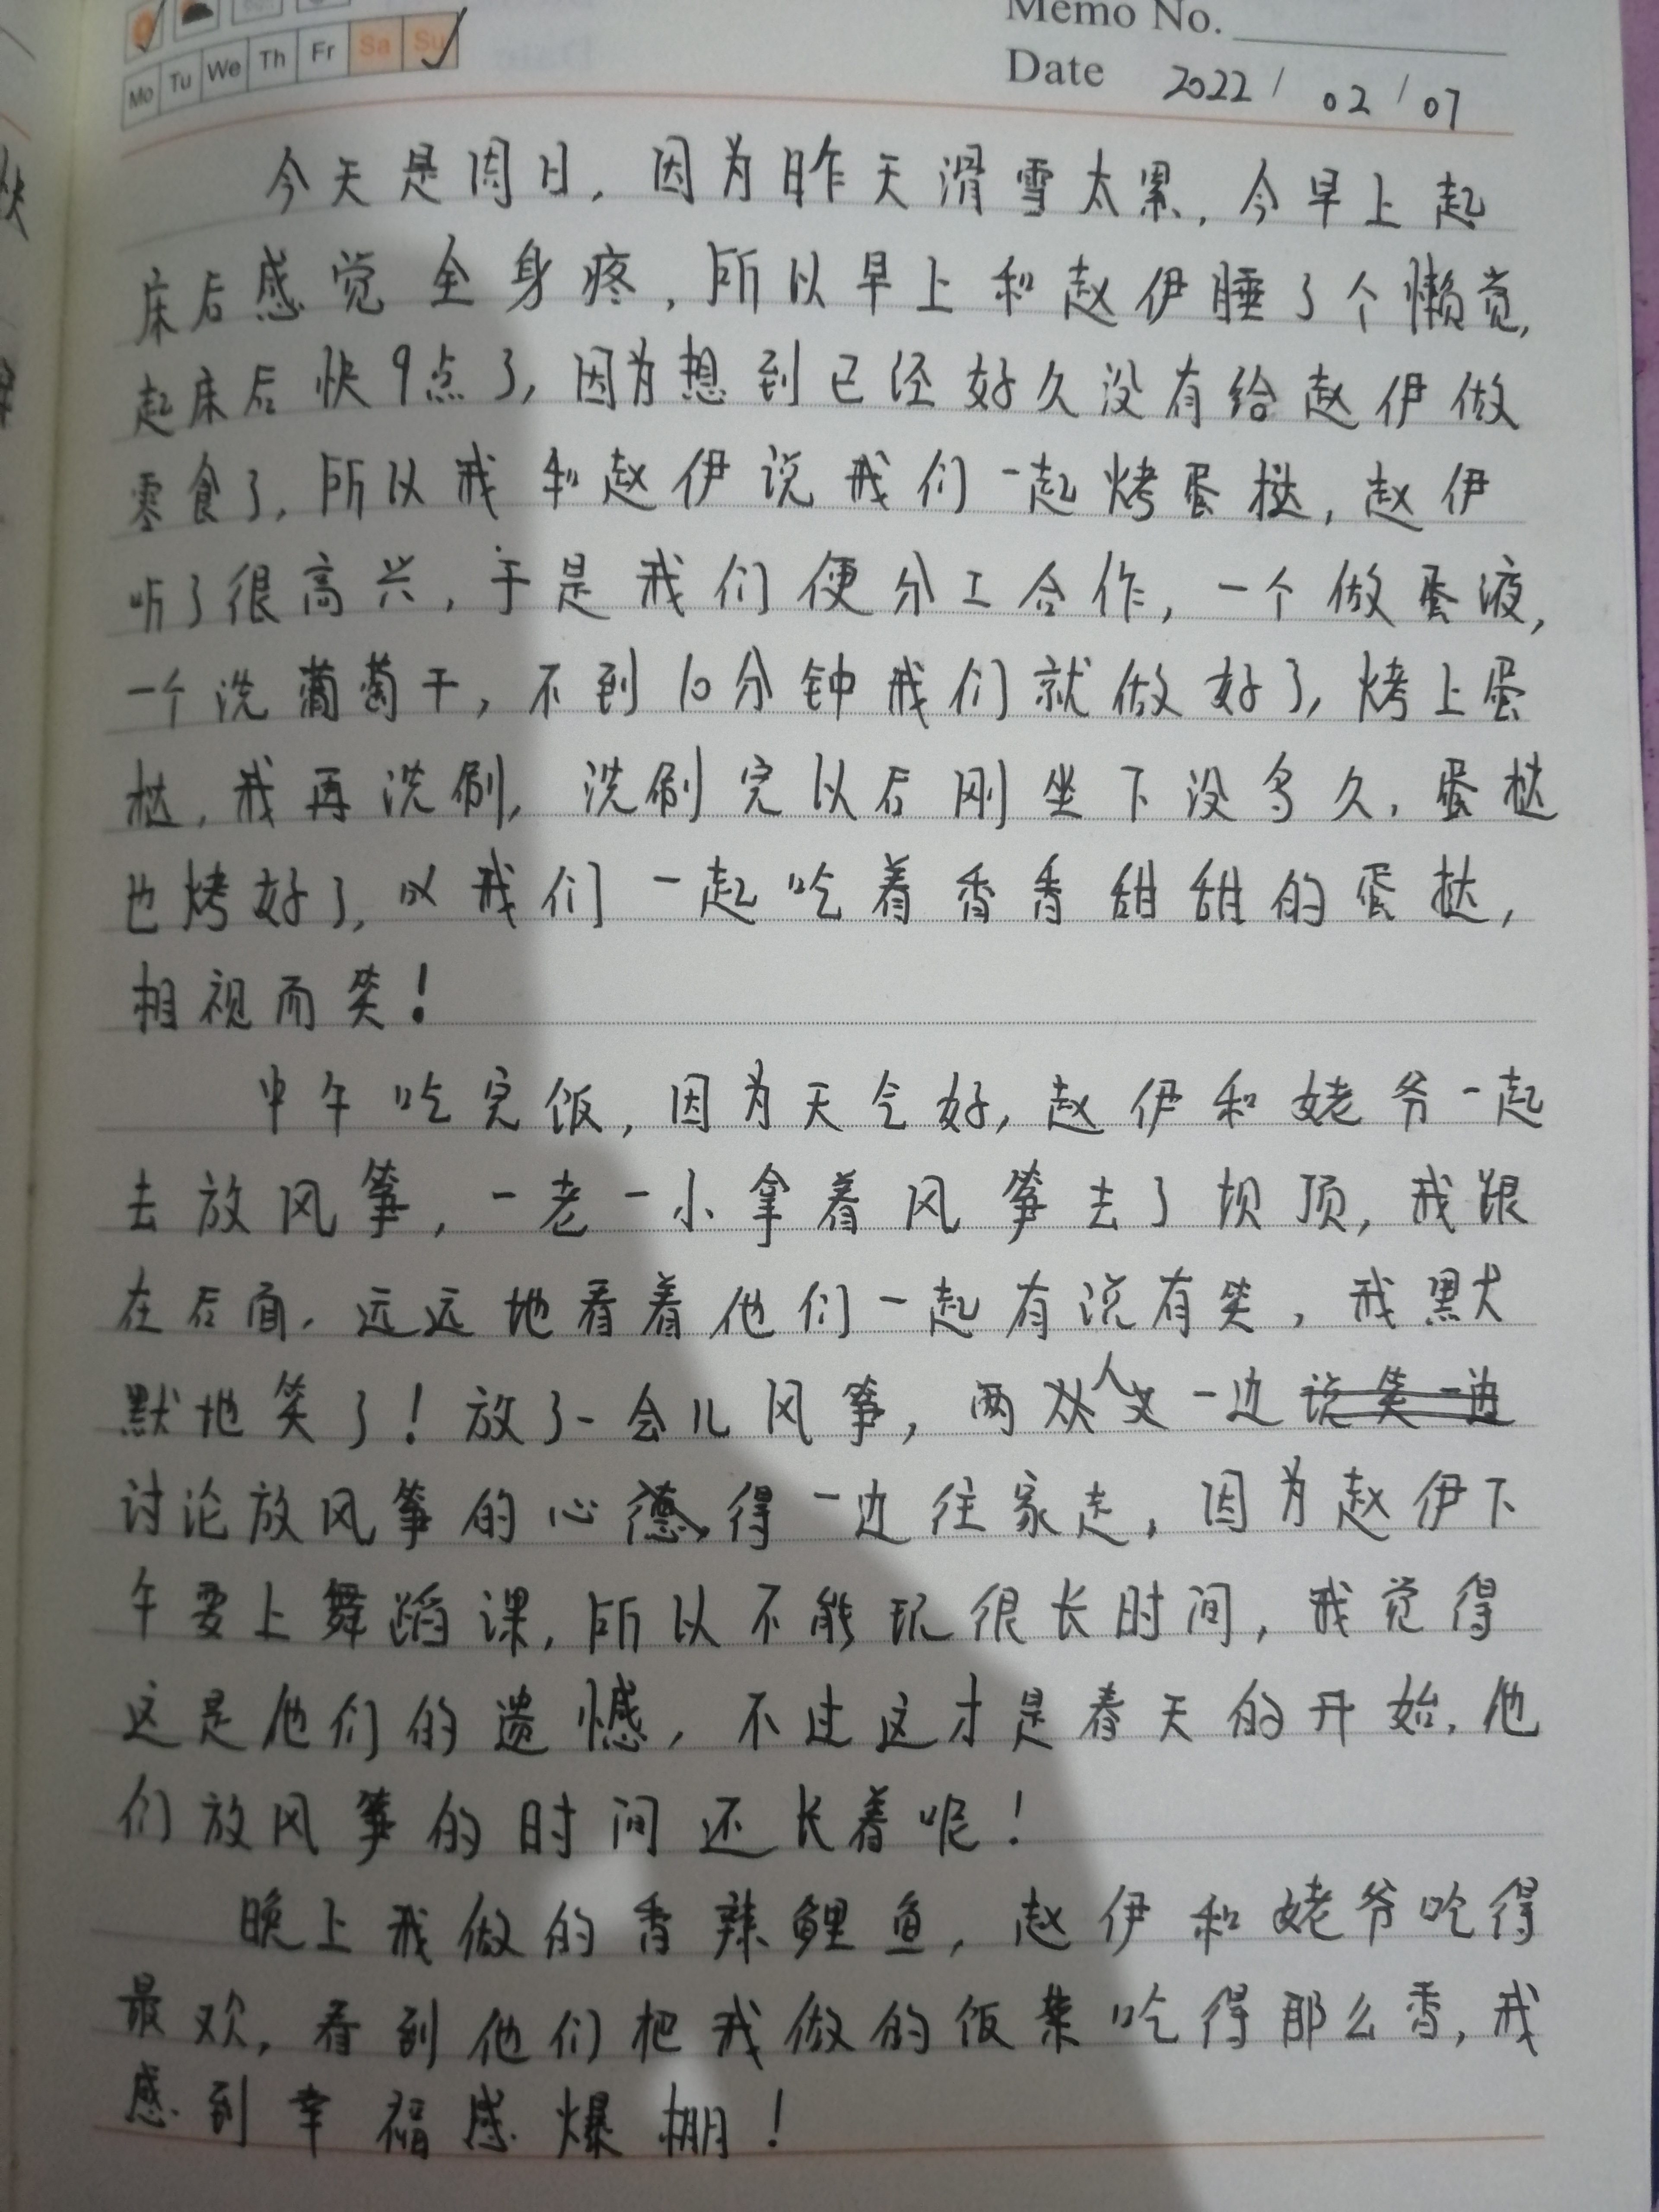 Memo No.
Mo Tu We Th Fr Sa Su
Date 2022 / 02 / 07
今天是周日，因为昨天滑雪太累，今早上起
床后感觉全身疼，所以早上和赵伊睡了个懒觉，
起床后快9点了，因为想到已经好久没有给赵伊做
零食了，所以我和赵伊说我们一起烤蛋挞，赵伊
听了很高兴，于是我们便分工合作，一个做蛋液，
一个洗葡萄干，不到10分钟我们就做好了，烤上蛋
挞，我再洗刷，洗刷完以后刚坐下没多久，蛋挞
也烤好了，我们一起吃着香香甜甜的蛋挞，
相视而笑！
中午吃完饭，因为天气好，赵伊和姥爷一起
去放风筝，一老一小拿着风筝去了坝顶，我跟
在后面，远远地看着他们一起有说有笑，我默
默地笑了！放了一会儿风筝，两人又一边说笑一边
讨论放风筝的心得一边往家走，因为赵伊下
午要上舞蹈课，所以不能玩很长时间，我觉得
这是他们的遗憾，不过这才是春天的开始，他
们放风筝的时间还长着呢！
晚上我做的香辣鲤鱼，赵伊和姥爷吃得
最欢，看到他们把我做的饭菜吃得那么香，我
感到幸福感爆棚！